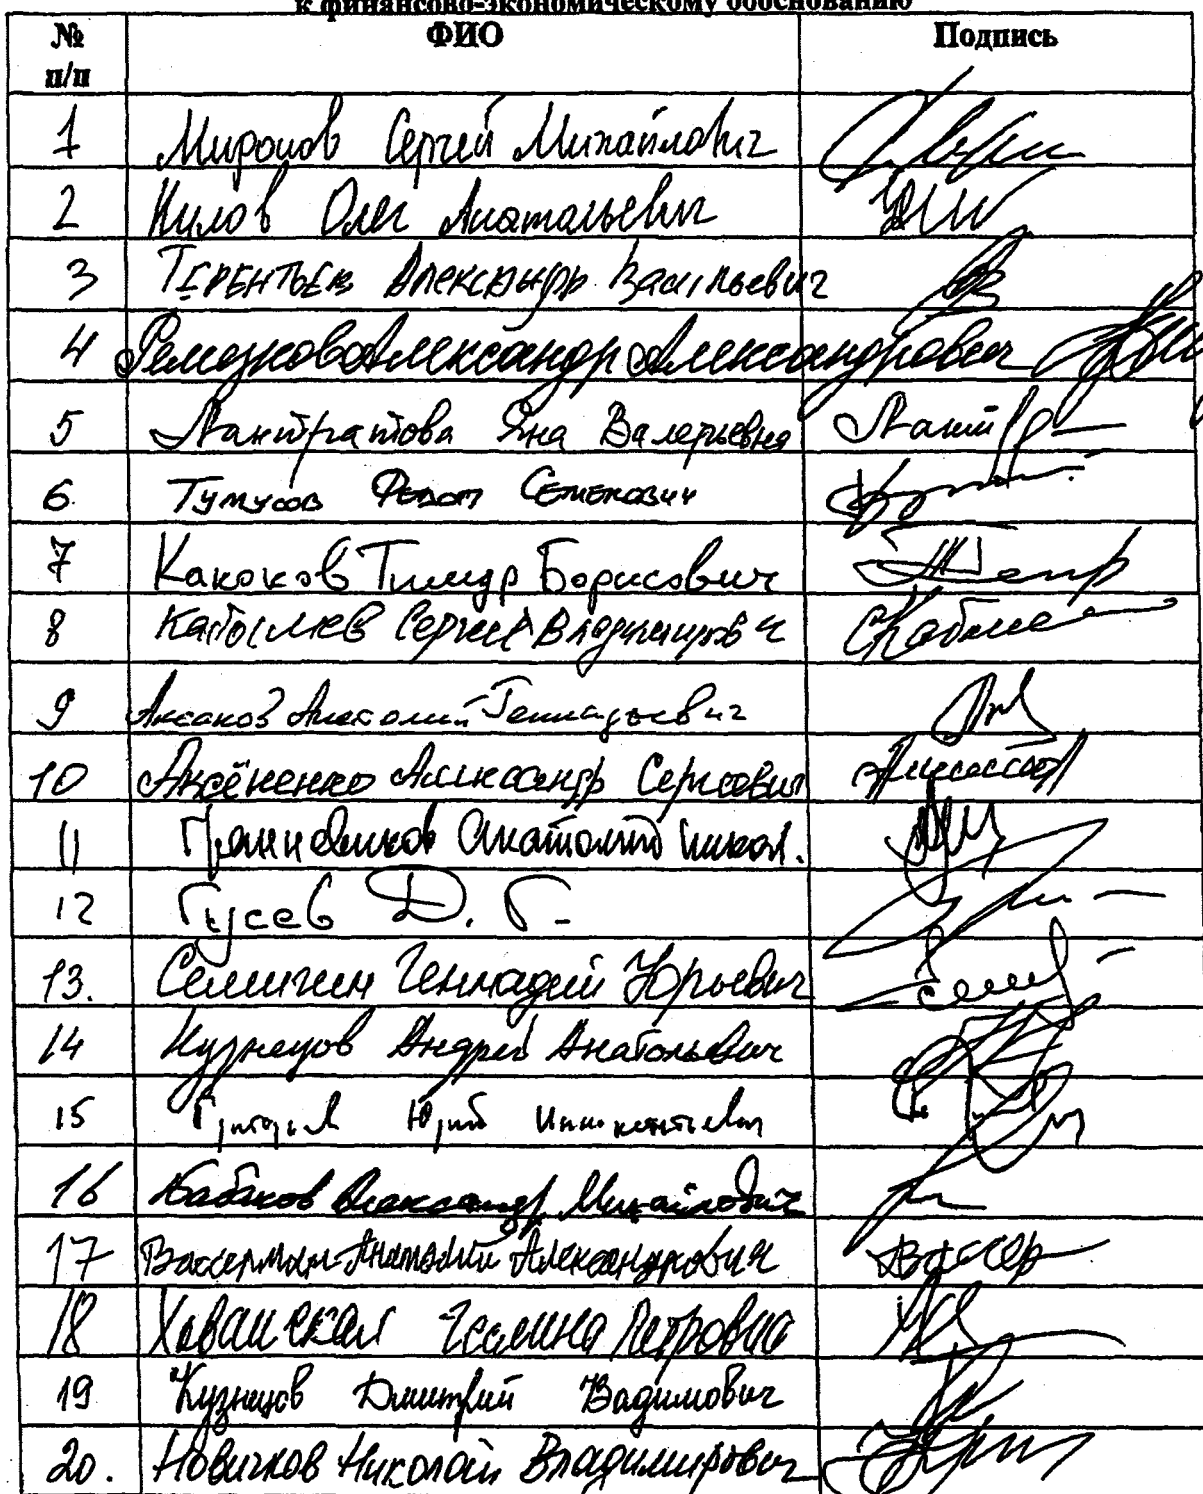 к финансово-экономическому обоснованию
№ п/п ФИО Подпись
1 Миронов Сергей Михайлович
2 Нилов Олег Анатольевич
3 Терентьев Александр Васильевич
4 Ремезков Александр Александрович
5 Лантратова Яна Валерьевна Лантр
6. Тумусов Федот Семенович
7 Каноков Тимур Борисович
8 Кабышев Сергей Владимирович
9 Аксаков Анатолий Геннадьевич
10 Аксёненко Александр Сергеевич
11 Грешневиков Анатолий Никол.
12 Гусев Д. Г.
13. Семигин Геннадий Юрьевич
14 Кузнецов Андрей Анатольевич
15 Григорьев Юрий Иннокентьевич
16 Бабаков Александр Михайлович
17 Вассерман Анатолий Александрович Вассер
18 Хованская Галина Петровна
19 Кузнецов Дмитрий Вадимович
20. Новичков Николай Владимирович